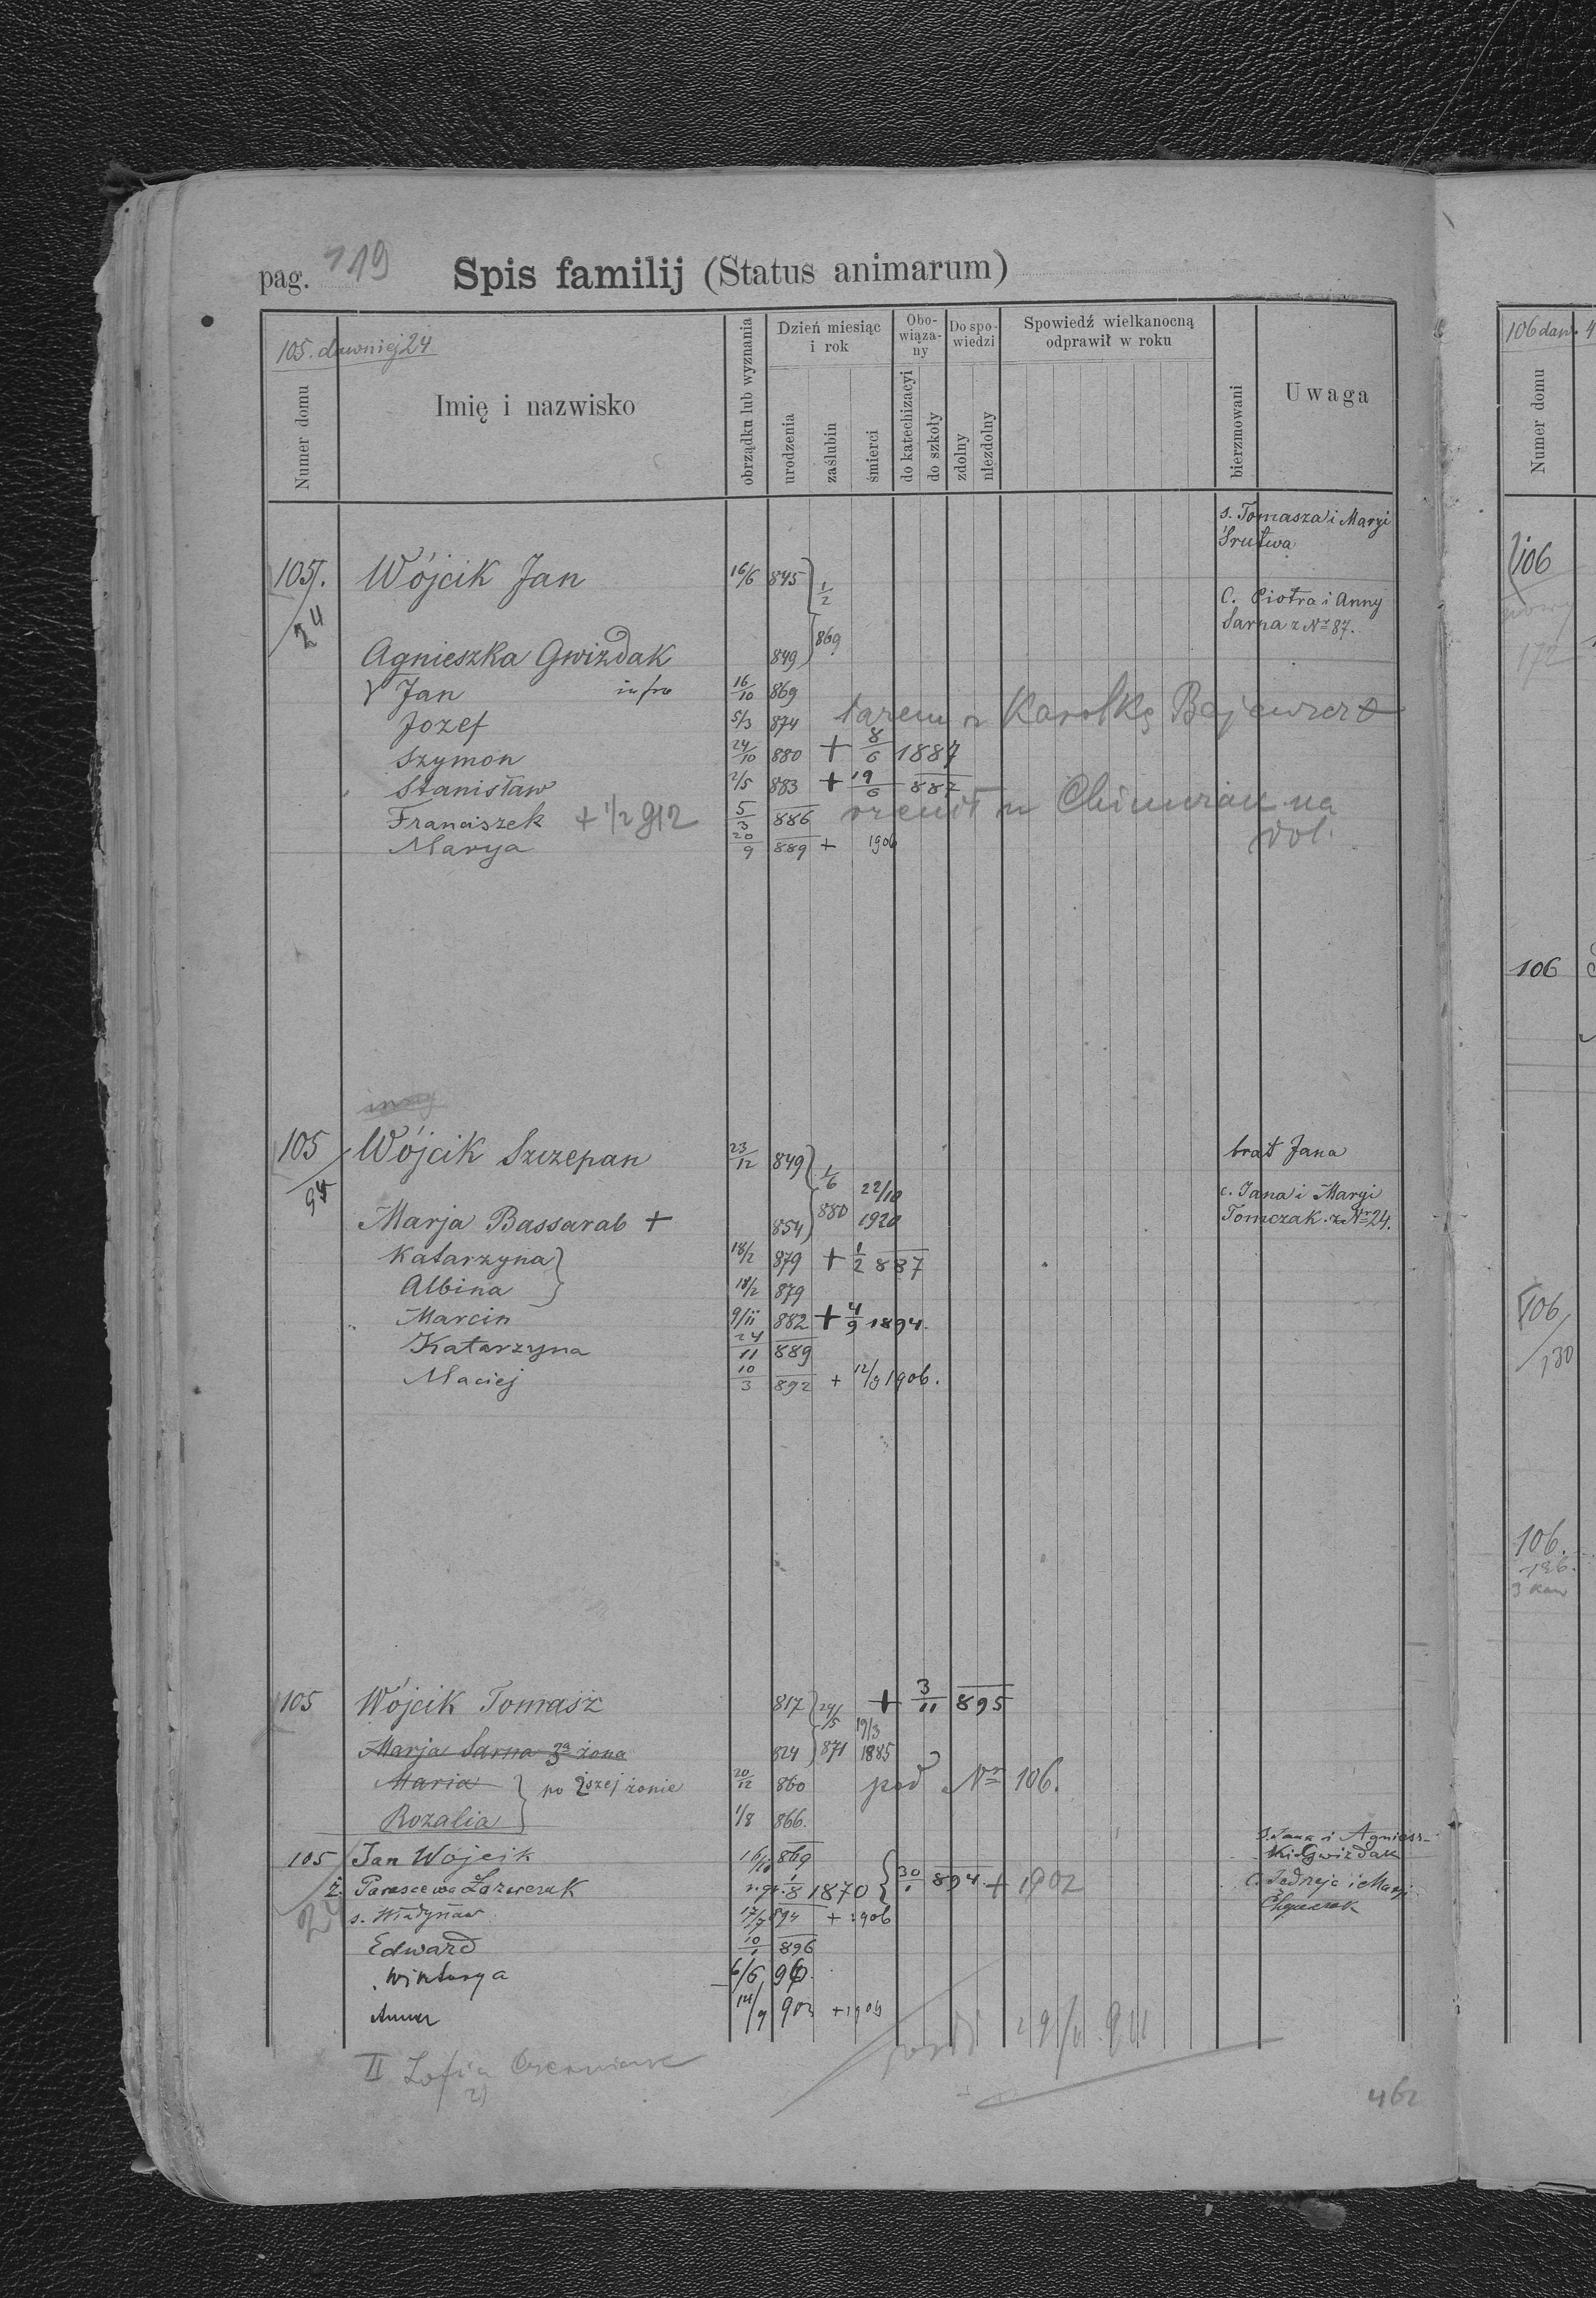 pag. 119 Spis familij (Status animarum)
105. dawniej 24
Numer domu
Imię i nazwisko
obrządku lub wyznania
Dzień miesiąc i rok
urodzenia
zaślubin
śmierci
Obo-wiąza-ny
do katechizacyi
do szkoły
Do spo-wiedzi
zdolny
niezdolny
Spowiedź wielkanocną odprawił w roku
bierzmowani
Uwaga
s. Tomasza i Maryi
Srutwa
105. Wójcik Jan 16/6 845 1/2
24
C. Piotra i Anny
Sarna z Nr 87.
Agnieszka Gwizdak 849 869
Jan infra 16/10 869
Jozef 5/3 874 Karolkę
Szymon 24/10 880 + 8/6 1887
Stanisław 2/5 883 + 19/6 887
Franciszek + 1/2 912 5/3 886 na
Marya 20/9 889 + 1906 dol.
105 Wójcik Szczepan 23/12 849 1/6 brat Jana
94
22/10 c. Jana i Maryi
Marja Bassarab + 854 880 1920 Tomczak z Nr 24.
Katarzyna 18/2 879 + 1/2 887
Albina 18/2 879
Marcin 9/11 882 + 4/9 1894.
Katarzyna 24/11 889
Maciej 10/3 892 + 12/9 1906.
105 Wójcik Tomasz 817 24/5 + 3/11 895
Marja Sarna 3a żona 824 871 19/3 1885
Maria po 2szej żonie 20/12 860 pod Nr 106.
Rozalia 1/8 866.
105 Jan Wójcik 16/10 869 s. Jana i Agniesz-
ki Gwizdak
ż. Parascewa Łazurczak r. gr. 1/8 1870 30/1 894. + 1902 c. Jędrzeja i Maryi
s. Władysław 17/9 894 + 1906
Edward 10/1 896
Wiktorya 6/6 90.
Anna 14/9 903
II Zofia
462
106 daw. 4
Numer domu
106
172
106
106
130
106.